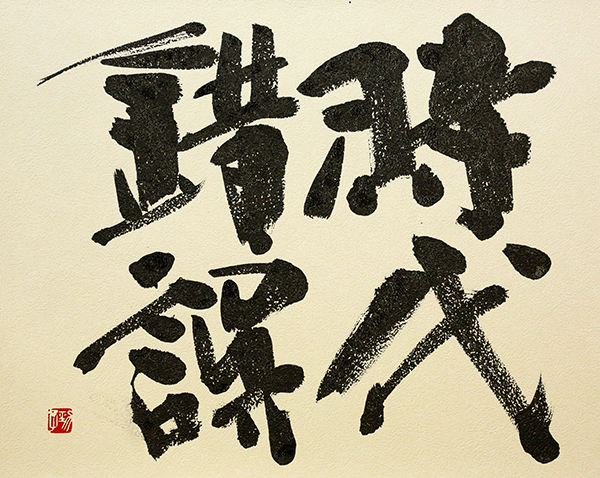 時代
錯誤